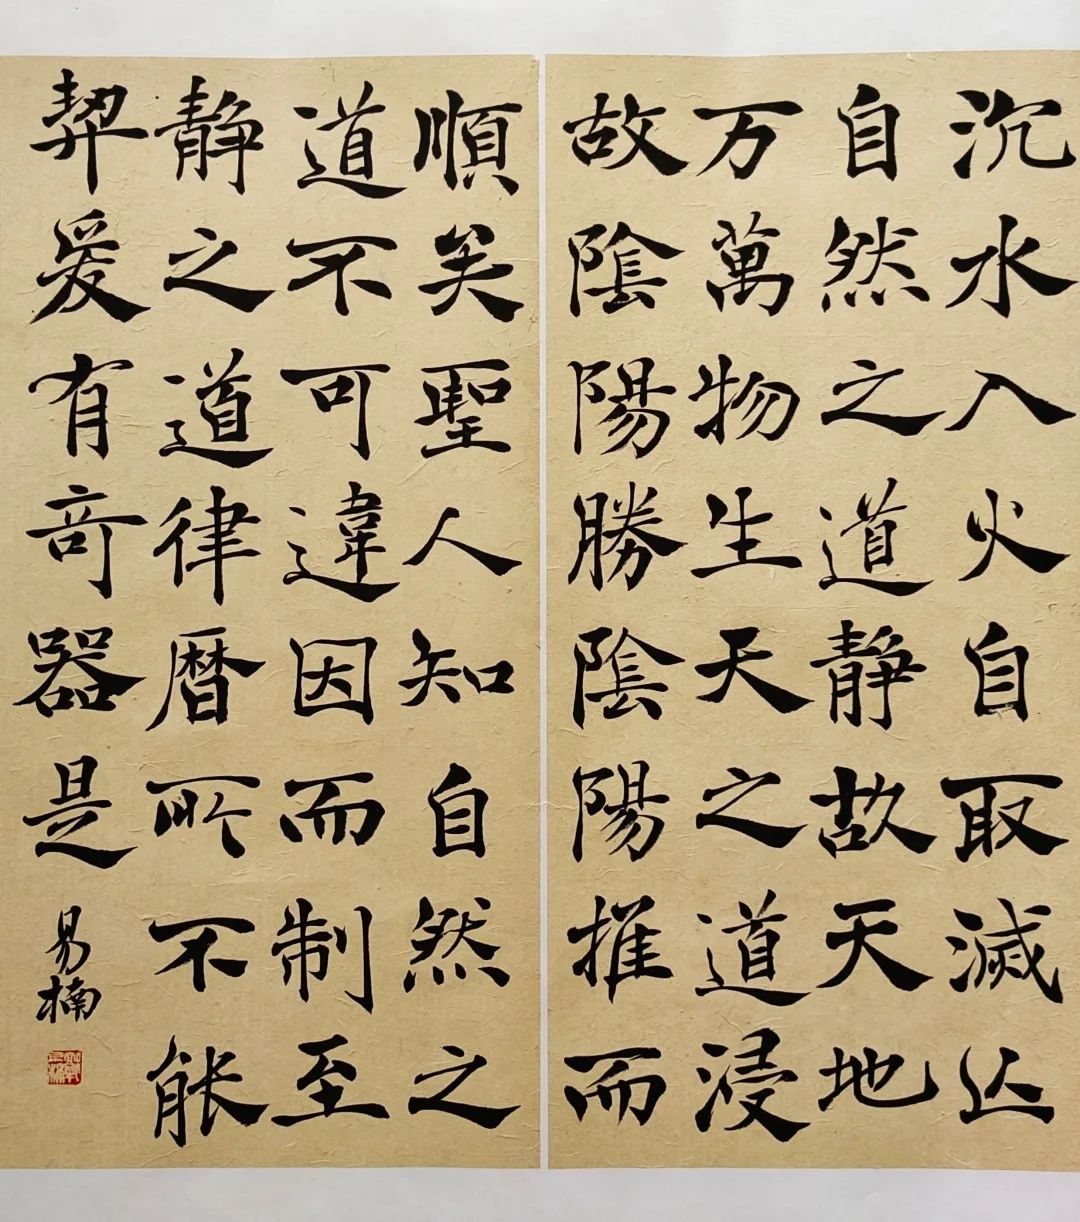 沉水入火自取滅亾
自然之道靜故天地
万萬物生天之道浸
故陰陽勝陰陽推而
順矣聖人知自然之
道不可違因而制至
静之道律曆所不能
契爰有竒器是
易楠